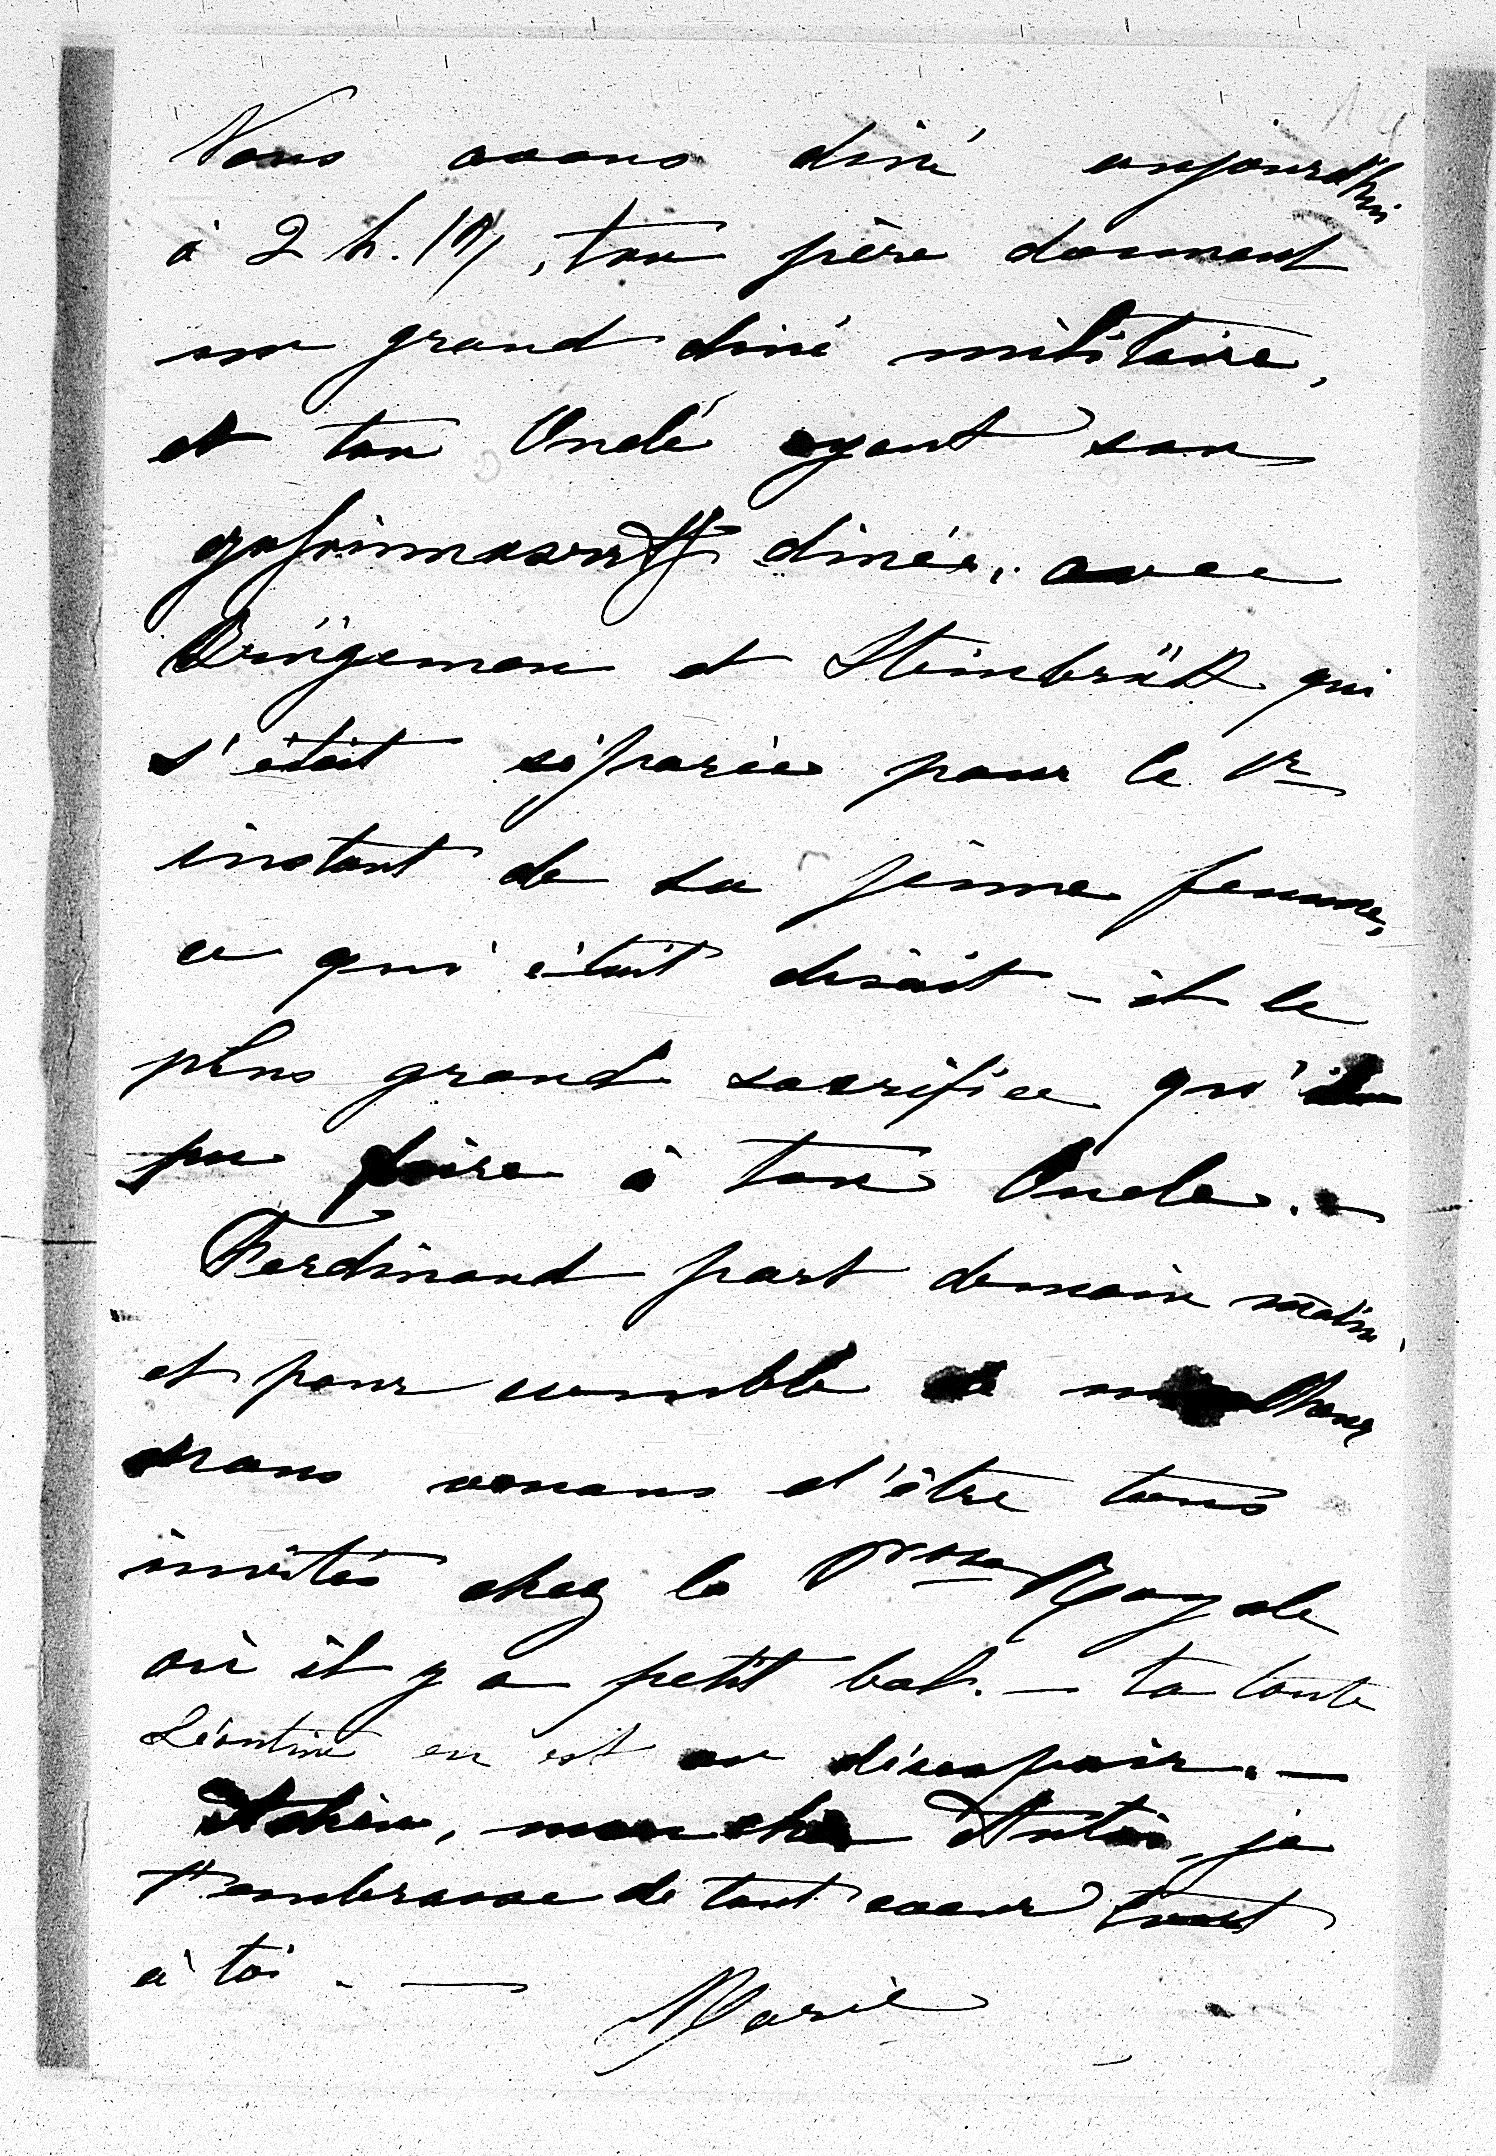 Nous avons diné aujourd'hui
à 2 h. 1/2, ton père donnant
un grand diné militaire,
et ton Oncle ayant son
diné, avec
Brügeman et Steinbrük qui
s'était séparée pour le 1r
instant de sa jeune femme,
ce qui était disait-il le
plus grand sacrifice qu'il
pu faire à ton Oncle. —
Ferdinand part demain matin,
et pour comble de malheur
nous venons d'être tous
invités chez la Psse Royale
où il y a petit bal. — ta tante
Léontine en est au désespoir. —
Adieu, mon cher Antoin, je
t'embrasse de tout coeur tout
à toi. —
Marie